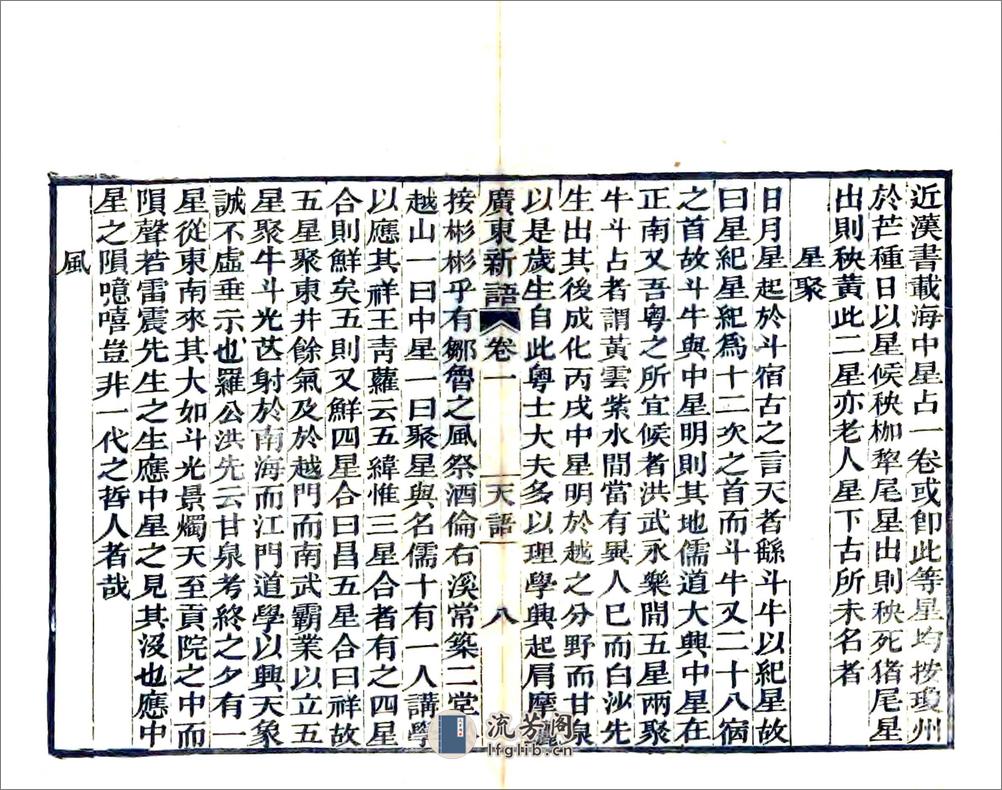 近漢書載海中星占一卷或卽此等星均按瓊州
於芒種日以星候秧枷犂尾星出則秧死猪尾星
出則秧黃此二星亦老人星下古所未名者
星聚
日月星起於斗宿古之言天者繇斗牛以紀星故
曰星紀星紀爲十二次之首而斗牛又二十八宿
之首故斗牛與中星明則其地儒道大興中星在
正南又吾粵之所宜候者洪武永樂間五星兩聚
牛斗占者謂黃雲紫水間當有異人已而白沙先
生出其後成化丙戌中星明於越之分野而甘泉
以是歲生自此粵士大夫多以理學興起肩摩
廣東新語 卷一 天語 八
接彬彬乎有鄒魯之風祭酒倫右溪常築二堂
越山一曰中星一曰聚星與名儒十有一人講學
以應其祥王靑蘿云五緯惟三星合者有之四星
合則鮮矣五則又鮮四星合曰昌五星合曰祥故
五星聚東井餘氣及於越門而南武霸業以立五
星聚牛斗光芒射於南海而江門道學以興天象
誠不虛垂示也羅公洪先云甘泉考終之夕有一
星從東南來其大如斗光景燭天至貢院之中而
隕聲若雷震先生之生應中星之見其沒也應中
星之隕噫嘻豈非一代之哲人者哉
風
流芳阁
lfglib.cn